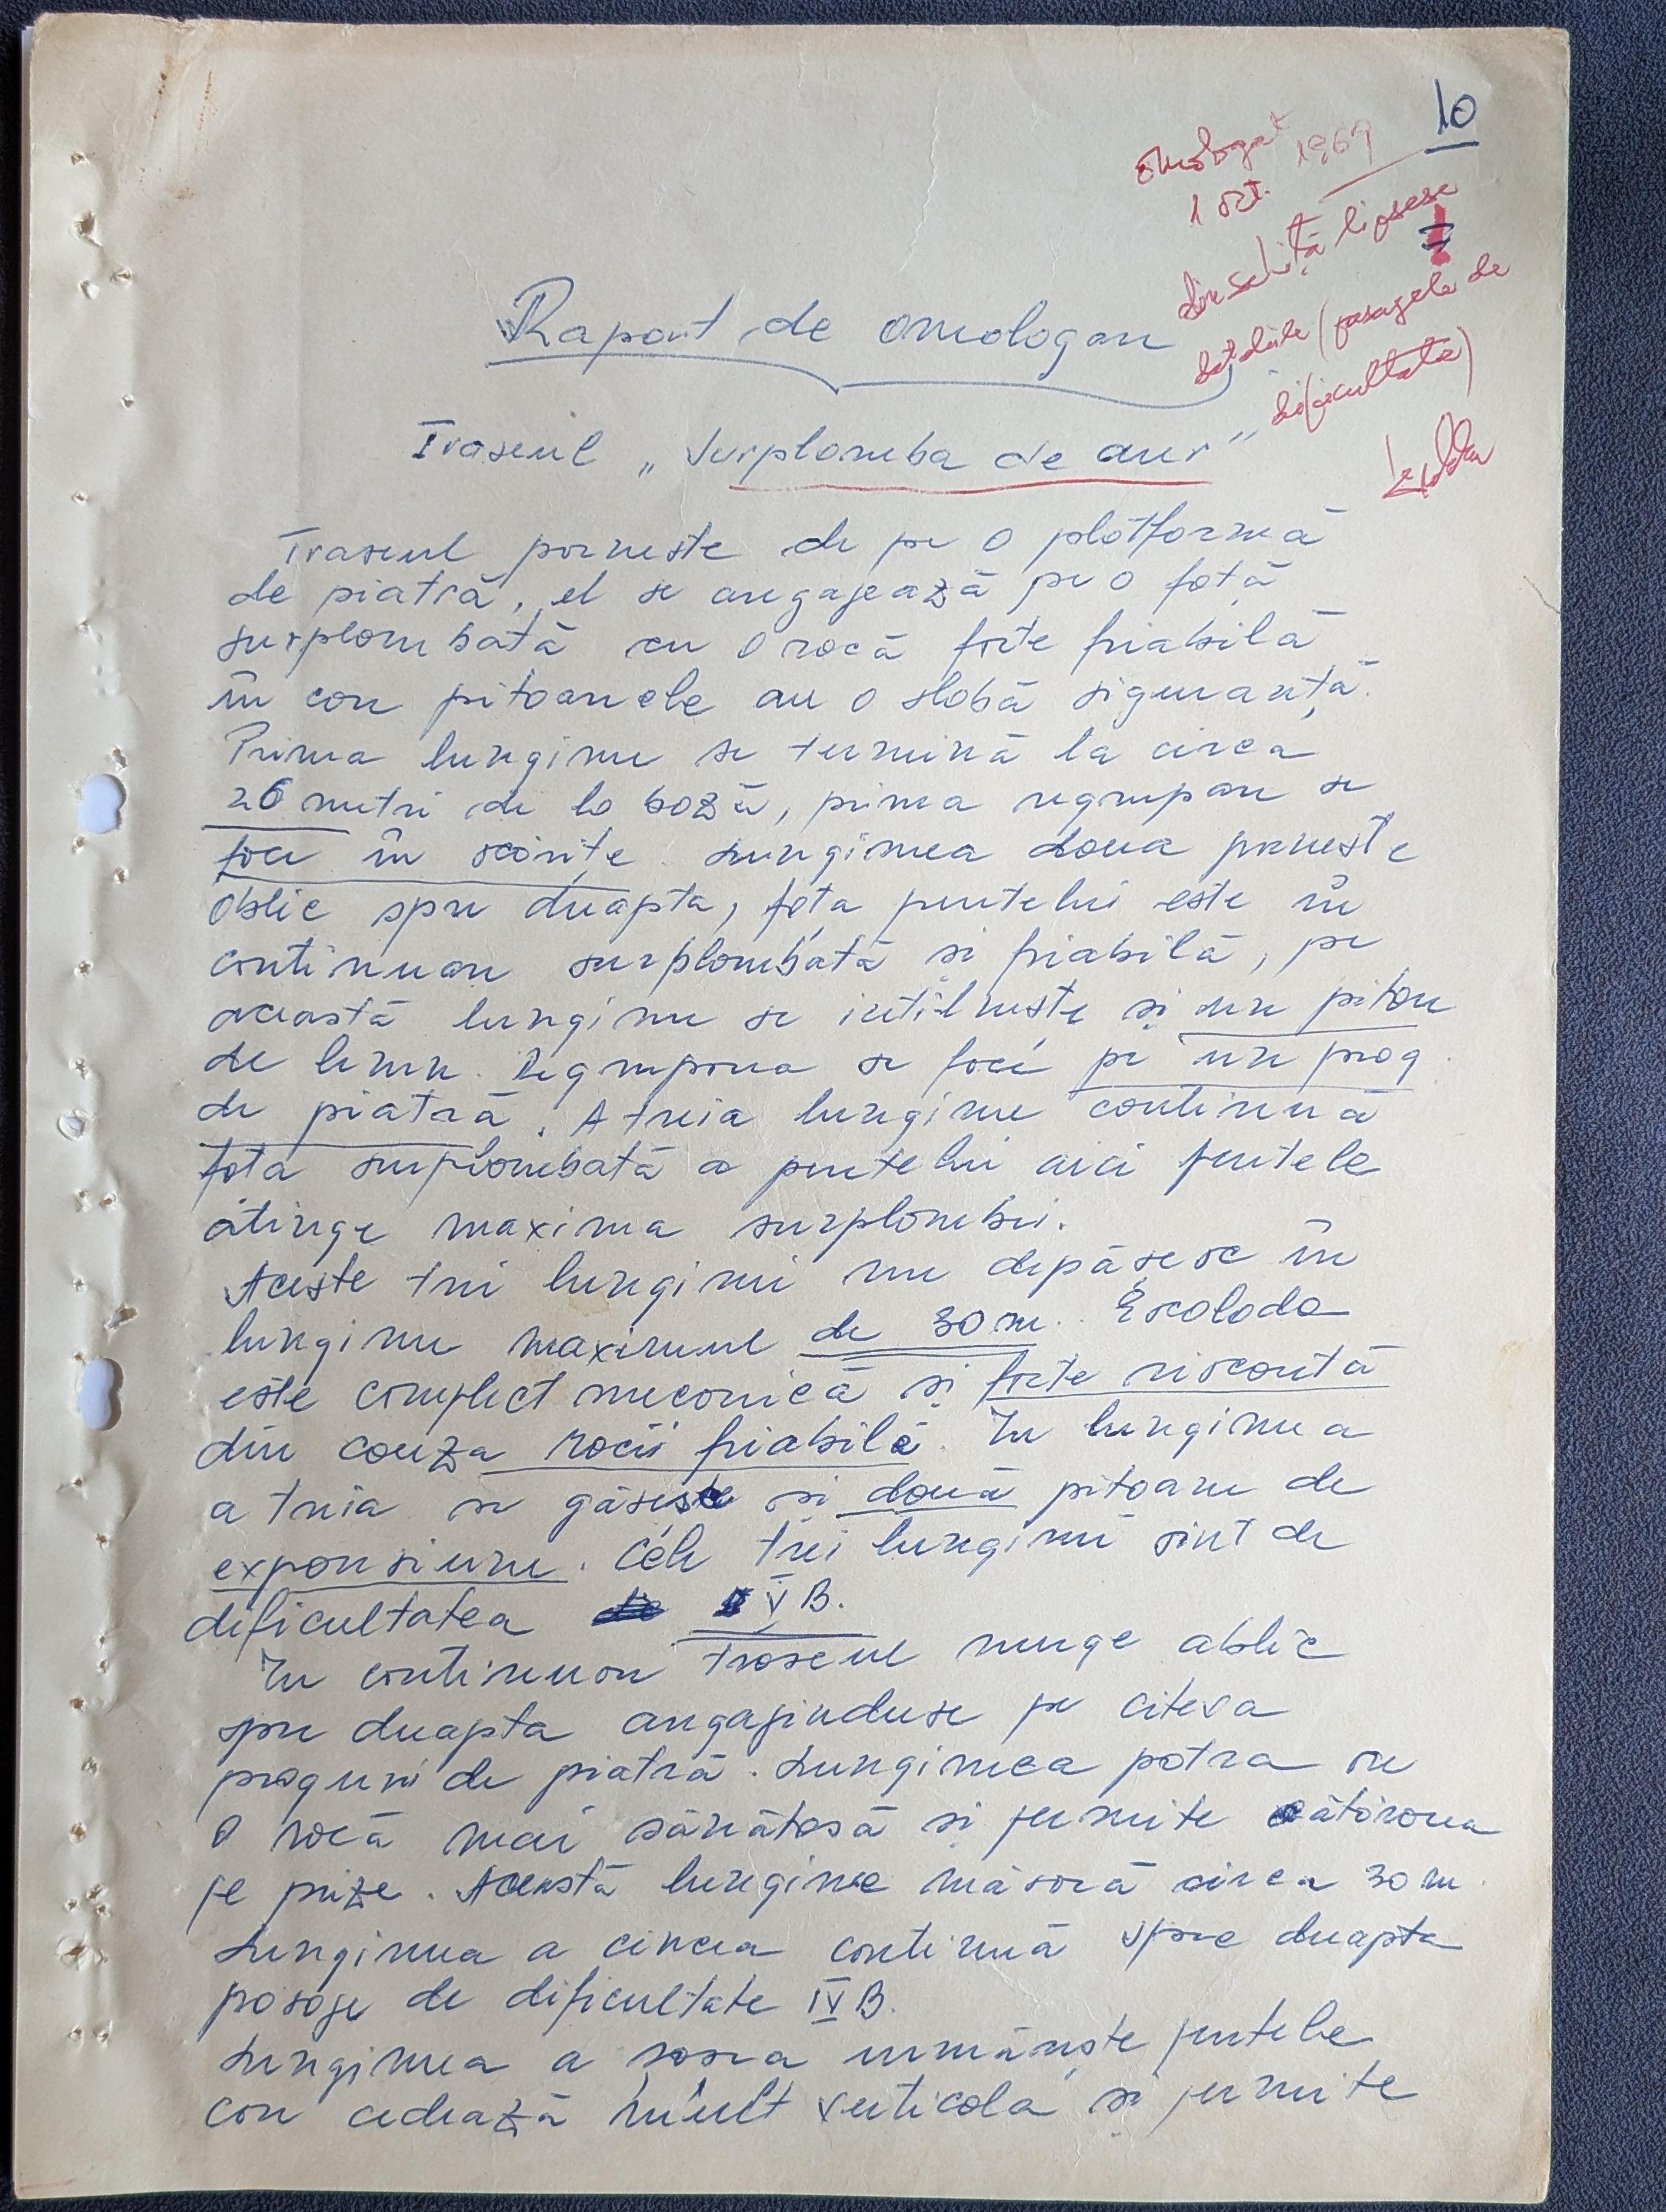 10
omologat
1 oct. 1969
din schiță lipsesc
detaliile (pasagele de
dificultate)
Raport de omologare
Traseul „Surplomba de aur”
Traseul pornește de pe o platformă
de piatră, el se angajează pe o față
surplombată cu o rocă forte friabilă
în care pitoanele au o slabă siguranță.
Prima lungime se termină la circa
20 metri de la bază, prima regrupare se
face în scărițe. Lungimea doua pornește
oblic spre dreapta, fața peretelui este în
continuare surplombată și friabilă, pe
această lungime se întîlnește și un piton
de lemn. Regruparea se face pe un prag
de piatră. A treia lungime continuă
fața surplombată a peretelui aici peretele
atinge maxima surplombei.
Aceste trei lungimi nu depășesc în
lungime maximul de 30 m. Escalada
este complect mecanică și forte riscantă
din cauza rocii friabilă. În lungimea
a treia se găsește și două pitoane de
expansiune. Cele trei lungimi sînt de
dificultatea V B.
În continuare traseul merge oblic
spre dreapta angajinduse pe citeva
praguri de piatră. Lungimea patra are
o rocă mai sănătosă și permite cățărarea
pe prize. Această lungime măsoră circa 30 m.
Lungimea a cincea continuă spre dreapta
pasaje de dificultate IV B.
Lungimea a șasea urmărește peretele
care cedează mult verticala și permite